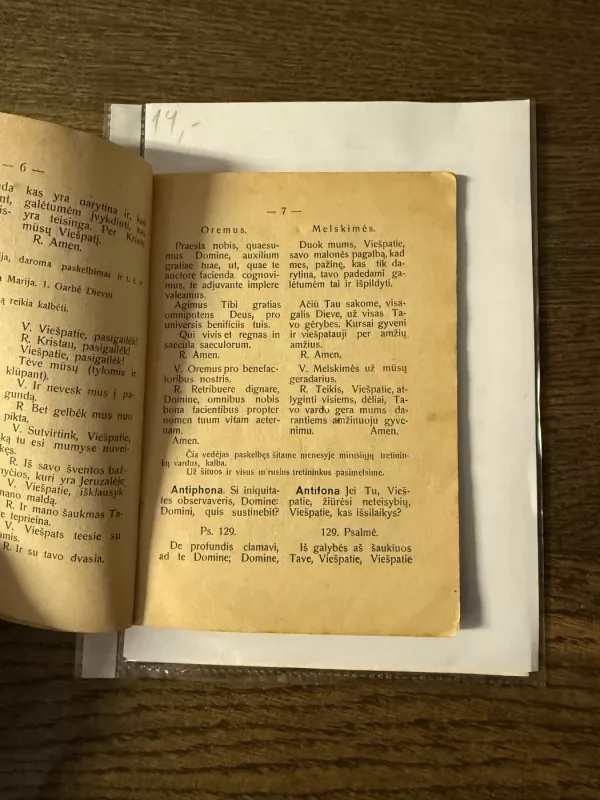 14,-
— 6 —
kas yra darytina ir, kad
galėtumėm įvykdinti, kas
yra teisinga. Per Kristų
mūsų Viešpatį.
R. Amen.
daroma paskelbimai ir t. t.
Marija. 1. Garbė Dievui
reikia kalbėti.
V. Viešpatie, pasigailėk!
R. Kristau, pasigailėk!
Viešpatie, pasigailėk!
Tėve mūsų (tylomis ir
klūpant).
V. Ir nevesk mus į pa-
gundą.
R. Bet gelbėk mus nuo
pikta.
V. Sutvirtink, Viešpatie,
ką tu esi mumyse nuvei-
kęs.
R. Iš savo šventos baž-
nyčios, kuri yra Jeruzalėje.
V. Viešpatie, išklausyk
mano maldą.
R. Ir mano šaukmas Ta-
ve teprieina.
V. Viešpats teesie su
jumis.
R. Ir su tavo dvasia.
— 7 —
Oremus.
Praesta nobis, quaesu-
mus Domine, auxilium
gratiae tuae, ut, quae te
auctore facienda cognovi-
mus, te adjuvante implere
valeamus.
Agimus Tibi gratias
omnipotens Deus, pro
universis benificiis tuis.
Qui vivis et regnas in
saecula saeculorum.
R. Amen.
V. Oremus pro benefac-
toribus nostris.
R. Retribuere dignare,
Domine, omnibus nobis
bona facientibus propter
nomen tuum vitam aeter-
nam.
Amen.
Melskimės.
Duok mums, Viešpatie,
savo malonės pagalbą, kad
mes, pažinę, kas tik da-
rytina, tavo padedami ga-
lėtumėm tai ir išpildyti.
Ačiū Tau sakome, visa-
galis Dieve, už visas Ta-
vo gėrybes. Kursai gyveni
ir viešpatauji per amžių
amžius.
R. Amen.
V. Melskimės už mūsų
geradarius.
R. Teikis, Viešpatie, at-
lyginti visiems, dėliai, Ta-
vo vardo gera mums da-
rantiems amžinuoju gyve-
nimu. Amen.
Čia vedėjas paskelbęs šitame menesyje mirusiųjų tretinin-
kų vardus, kalba.
Už šituos ir visus mirusius tretininkus pasimelsime.
Antiphona. Si iniquita-
tes observaveris, Domine:
Domini, quis sustinebit?
Ps. 129.
De profundis clamavi,
ad te Domine; Domine,
Antifona Jei Tu, Vieš-
patie, žiūrėsi neteisybių,
Viešpatie, kas išsilaikys?
129. Psalmė.
Iš galybės aš šaukiuos
Tave, Viešpatie, Viešpatie